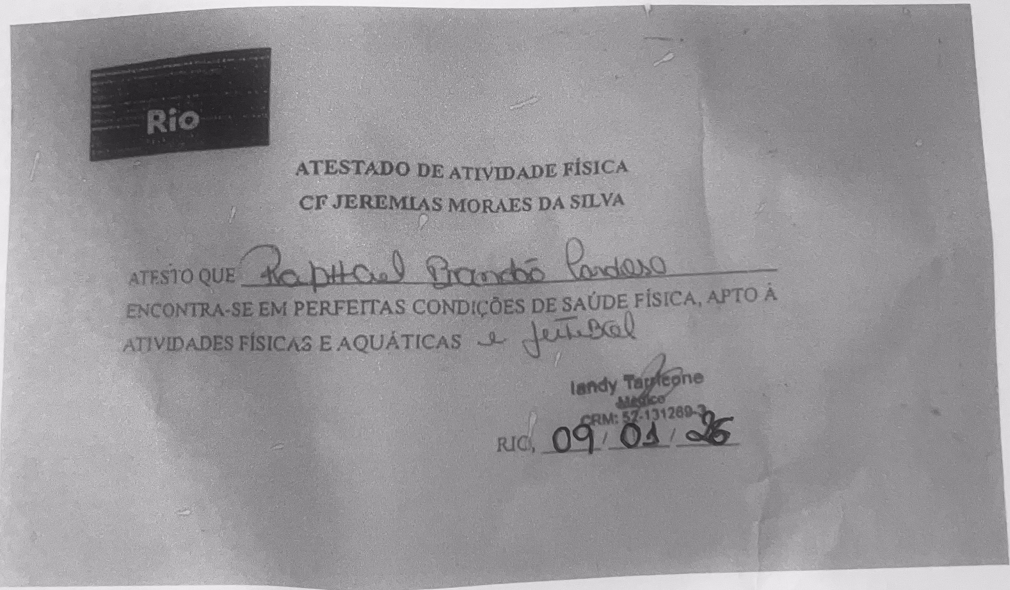 Rio
ATESTADO DE ATIVIDADE FÍSICA
CF JEREMIAS MORAES DA SILVA
ATESTO QUE Raphael Brandão Cardoso
ENCONTRA-SE EM PERFEITAS CONDIÇÕES DE SAÚDE FÍSICA, APTO À
ATIVIDADES FÍSICAS E AQUÁTICAS e futebol
Iandy Tarricone
Médico
CRM: 52-131269-3
RIO, 09/01/26